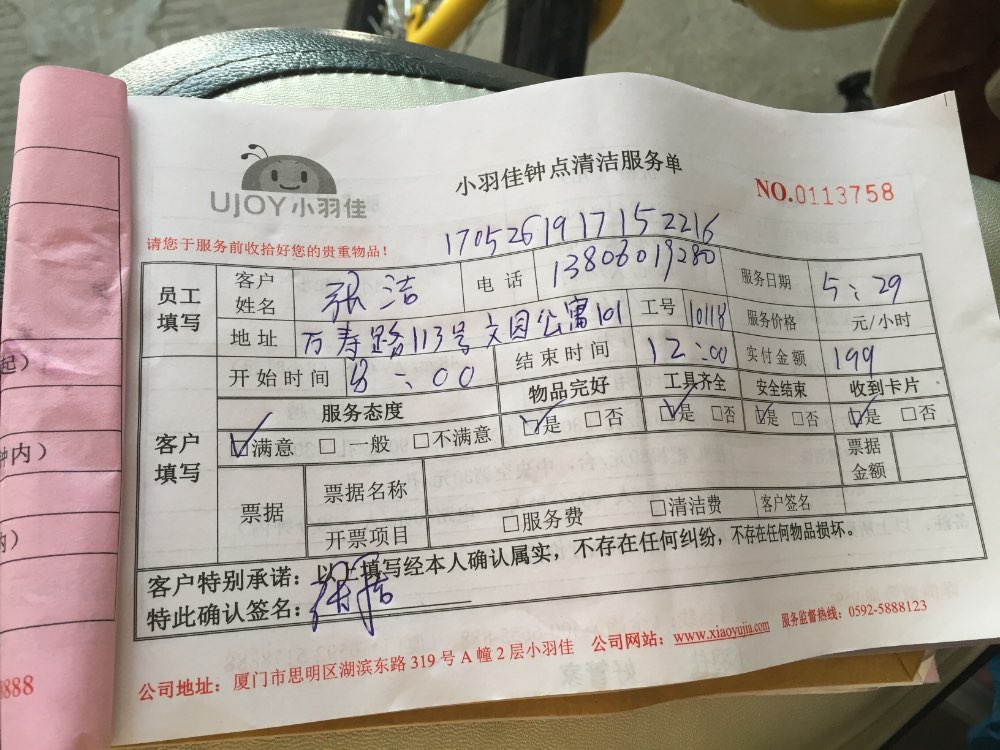 UJOY小羽佳
小羽佳钟点清洁服务单
NO.0113758
请您于服务前收拾好您的贵重物品！
1705261917152216
员工填写 客户姓名 张洁 电话 13806019280 服务日期 5:29
地址 万寿路113号文园公寓101 工号 10118 服务价格 元/小时
开始时间 8:00 结束时间 12:00 实付金额 199
客户填写 服务态度 物品完好 工具齐全 安全结束 收到卡片
☑满意 □一般 □不满意 ☑是 □否 ☑是 □否 ☑是 □否 ☑是 □否
票据 票据名称 票据金额
开票项目 □服务费 □清洁费 客户签名
客户特别承诺：以上填写经本人确认属实，不存在任何纠纷，不存在任何物品损坏。
特此确认签名：
公司地址：厦门市思明区湖滨东路319号A幢2层小羽佳 公司网站：www.xiaoyujia.com 服务监督热线：0592-5888123
起）
钟内）
内）
8888